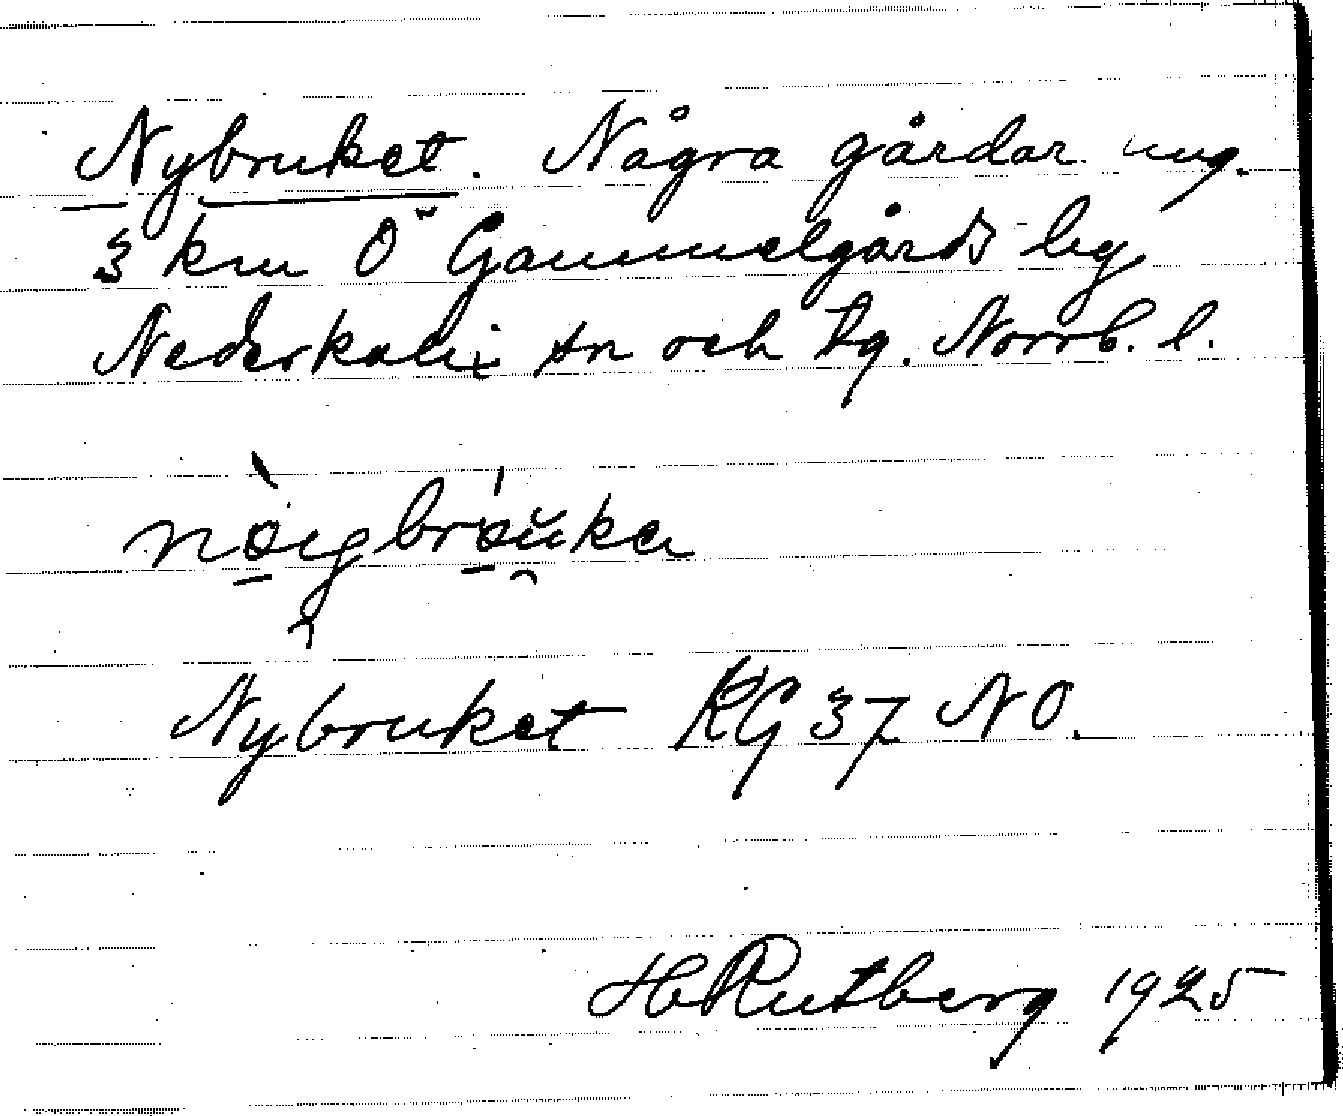 Nybruket. Några gårdar ung.
3 km O Gammelgårds by
Nederkalix sn och tg. Norrb. l.
Nybruket KG 37 NO.
H Rutberg 1925